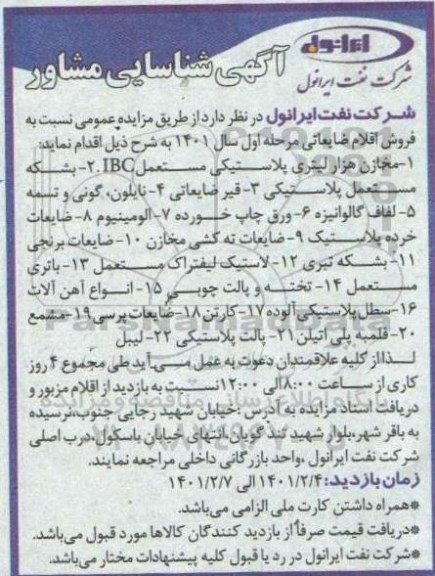 ایرانول
شرکت نفت ایرانول
آگهی شناسایی مشاور
شرکت نفت ایرانول در نظر دارد از طریق مزایده عمومی نسبت به
فروش اقلام ضایعاتی مرحله اول سال ۱۴۰۱ به شرح ذیل اقدام نماید:
۱-مخازن هزار لیتری پلاستیکی مستعمل IBC ۲- بشکه
مستعمل پلاستیکی ۳- قیر ضایعاتی ۴- نایلون، گونی و تسمه
۵- لفاف گالوانیزه ۶- ورق چاپ خورده ۷- آلومینیوم ۸- ضایعات
خرده پلاستیک ۹- ضایعات ته کشی مخازن ۱۰- ضایعات برنجی
۱۱- بشکه تبری ۱۲- لاستیک لیفتراک مستعمل ۱۳- باتری
مستعمل ۱۴- تخته و پالت چوبی ۱۵- انواع آهن آلات
۱۶- سطل پلاستیکی آلوده ۱۷- کارتن ۱۸- ضایعات پرسی ۱۹- مشمع
۲۰- قلمبه پلی اتیلن ۲۱- پالت پلاستیکی ۲۲- لیبل
لذا از کلیه علاقمندان دعوت به عمل می آید طی مجموع ۴ روز
کاری از ساعت ۸:۰۰ الی ۱۲:۰۰ نسبت به بازدید از اقلام مزبور و
دریافت اسناد مزایده به آدرس :خیابان شهید رجایی جنوب، نرسیده
به باقر شهر، بلوار شهید تند گویان، انتهای خیابان باسکول، درب اصلی
شرکت نفت ایرانول ،واحد بازرگانی داخلی مراجعه نمایند.
زمان بازدید: ۱۴۰۱/۲/۴ الی ۱۴۰۱/۲/۷
*همراه داشتن کارت ملی الزامی می‌باشد.
*دریافت قیمت صرفاً از بازدید کنندگان کالاها مورد قبول می‌باشد.
*شرکت نفت ایرانول در رد یا قبول کلیه پیشنهادات مختار می‌باشد.
ParsNamadData